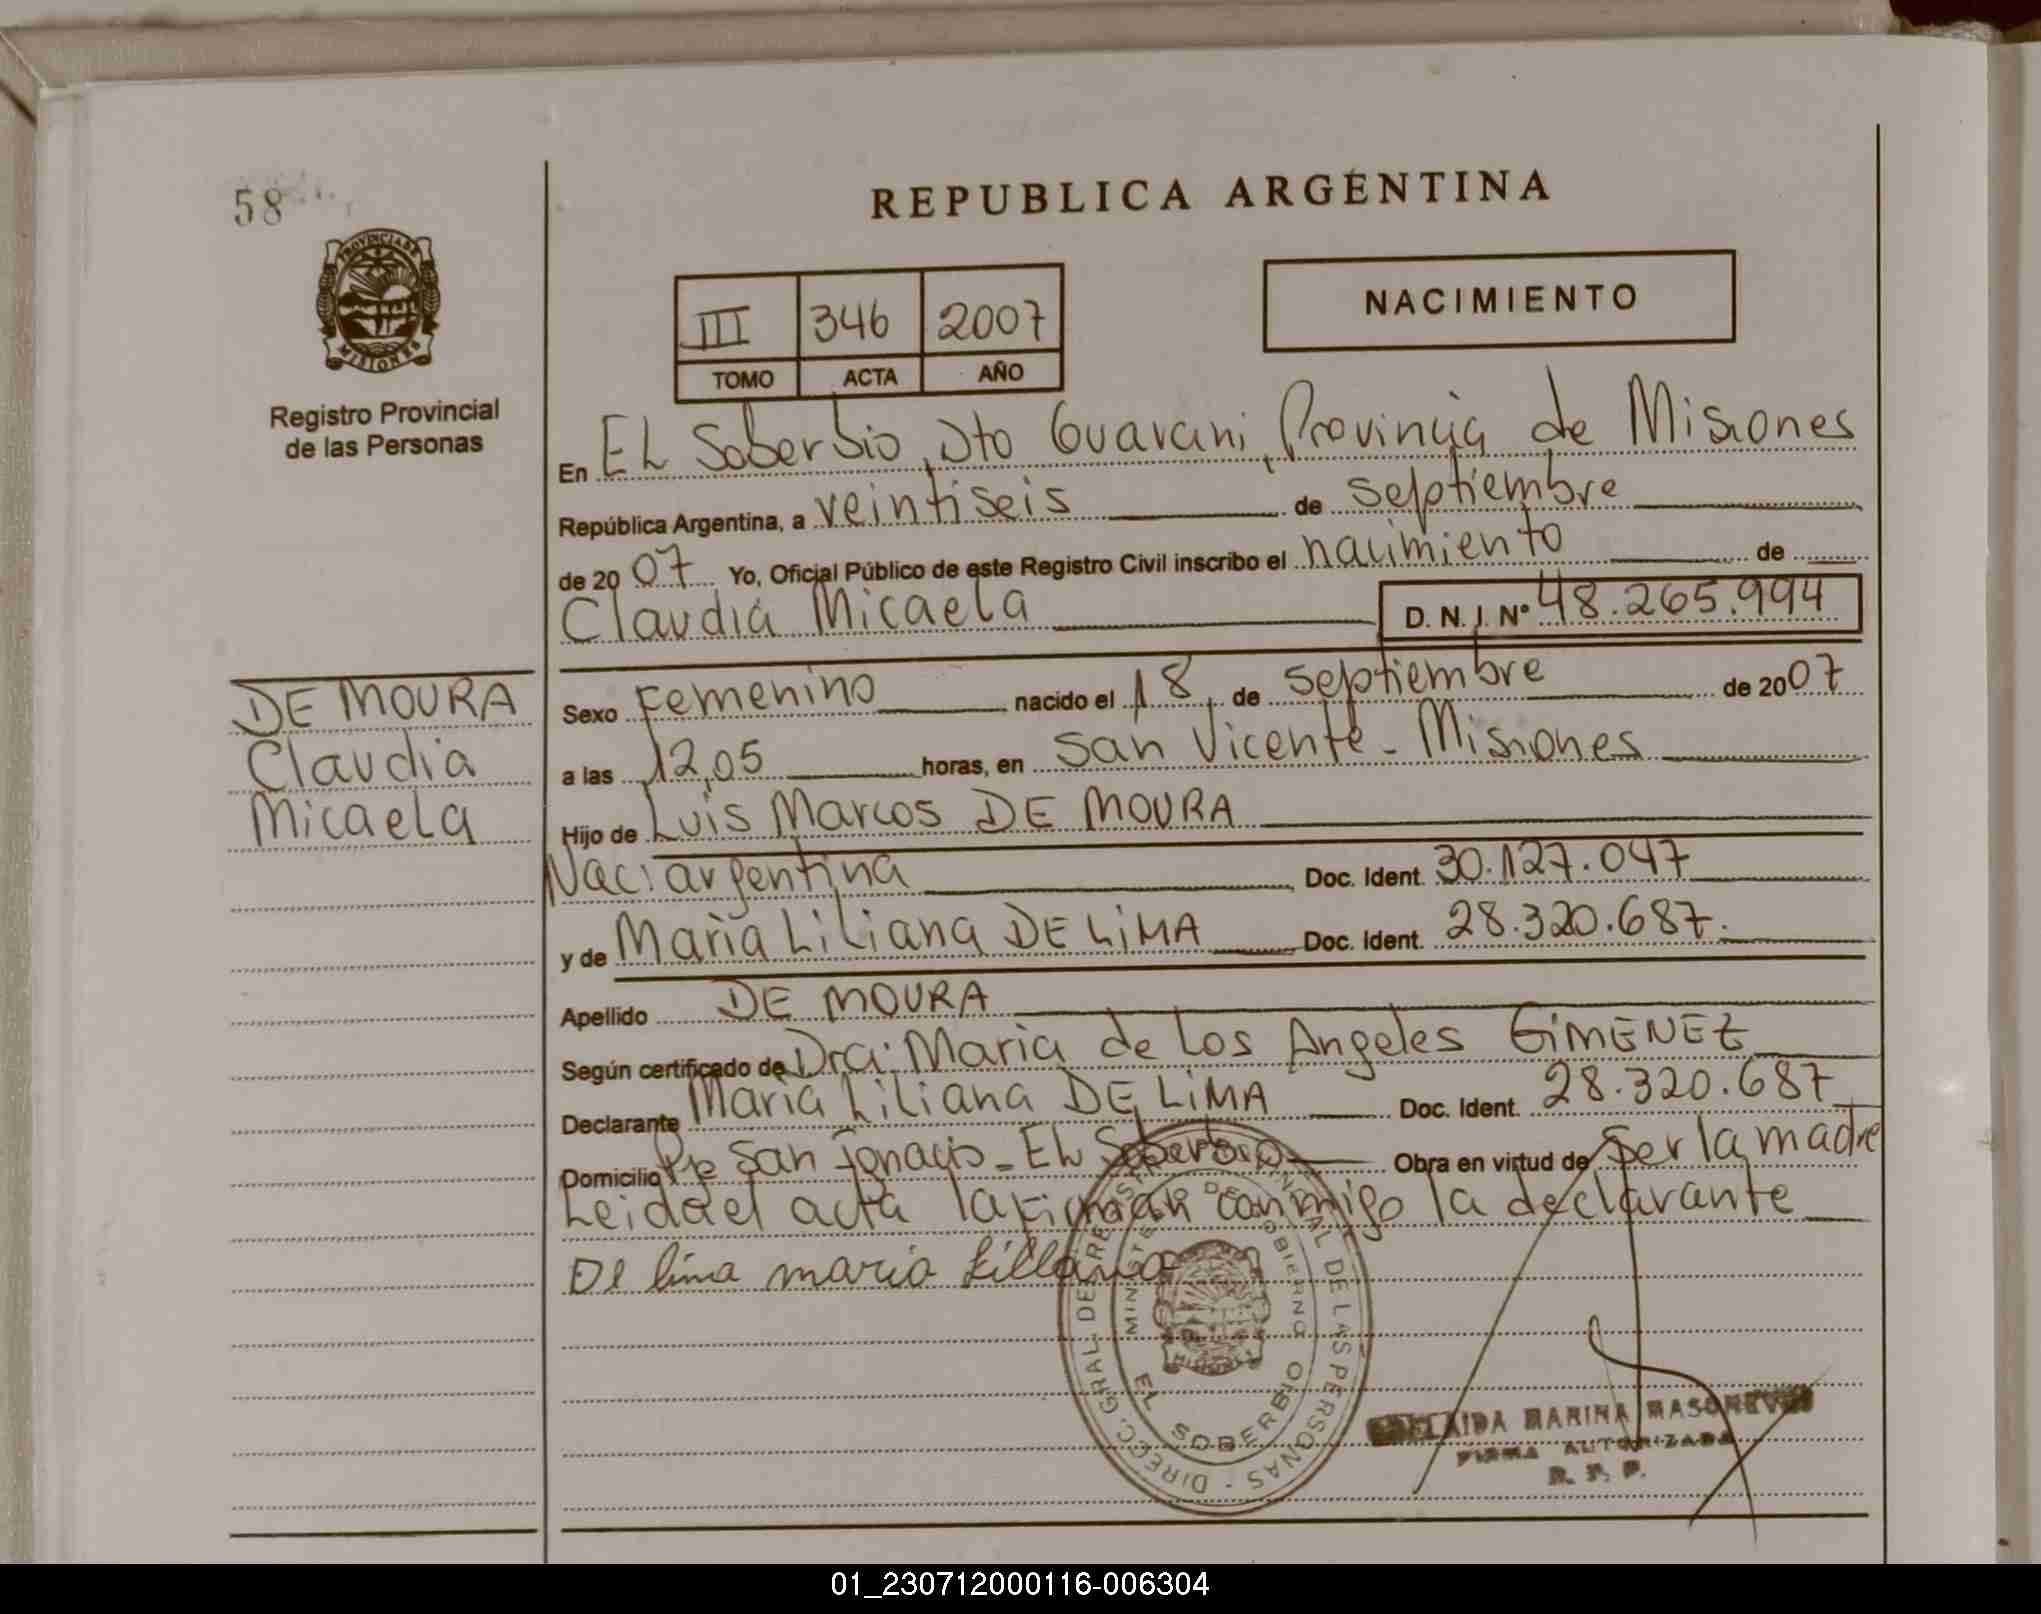 58
REPUBLICA ARGENTINA
PROVINCIA DE
MISIONES
Registro Provincial
de las Personas
III 346 2007
TOMO ACTA AÑO
NACIMIENTO
En EL Soberbio, Dto Guarani, Provincia de Misiones
República Argentina, a veintiseis de septiembre
de 2007 Yo, Oficial Público de este Registro Civil inscribo el nacimiento de
Claudia Micaela D. N. I. Nº 48.265.994
DE MOURA
Claudia
Micaela
Sexo Femenino nacido el 18 de septiembre de 2007
a las 12,05 horas, en San Vicente - Misiones
Hijo de Luis Marcos DE MOURA
Nac: argentina Doc. Ident. 30.127.047
y de Maria Liliana DE LIMA Doc. Ident. 28.320.687.
Apellido DE MOURA
Según certificado de Dra: Maria de Los Angeles GIMENEZ
Declarante Maria Liliana DE LIMA Doc. Ident. 28.320.687
Domicilio San Ignacio - EL Soberbio Obra en virtud de ser la madre
Leida el acta la firman conmigo la declarante
De lima maria Lilliana
DIRECC. GRAL. DE REGIST. PROVINCIAL DE LAS PERSONAS
MINISTERIO DE GOBIERNO
MISIONES
EL SOBERBIO
MARINA
FIRMA AUTORIZADA
R. P. P.
01_230712000116-006304